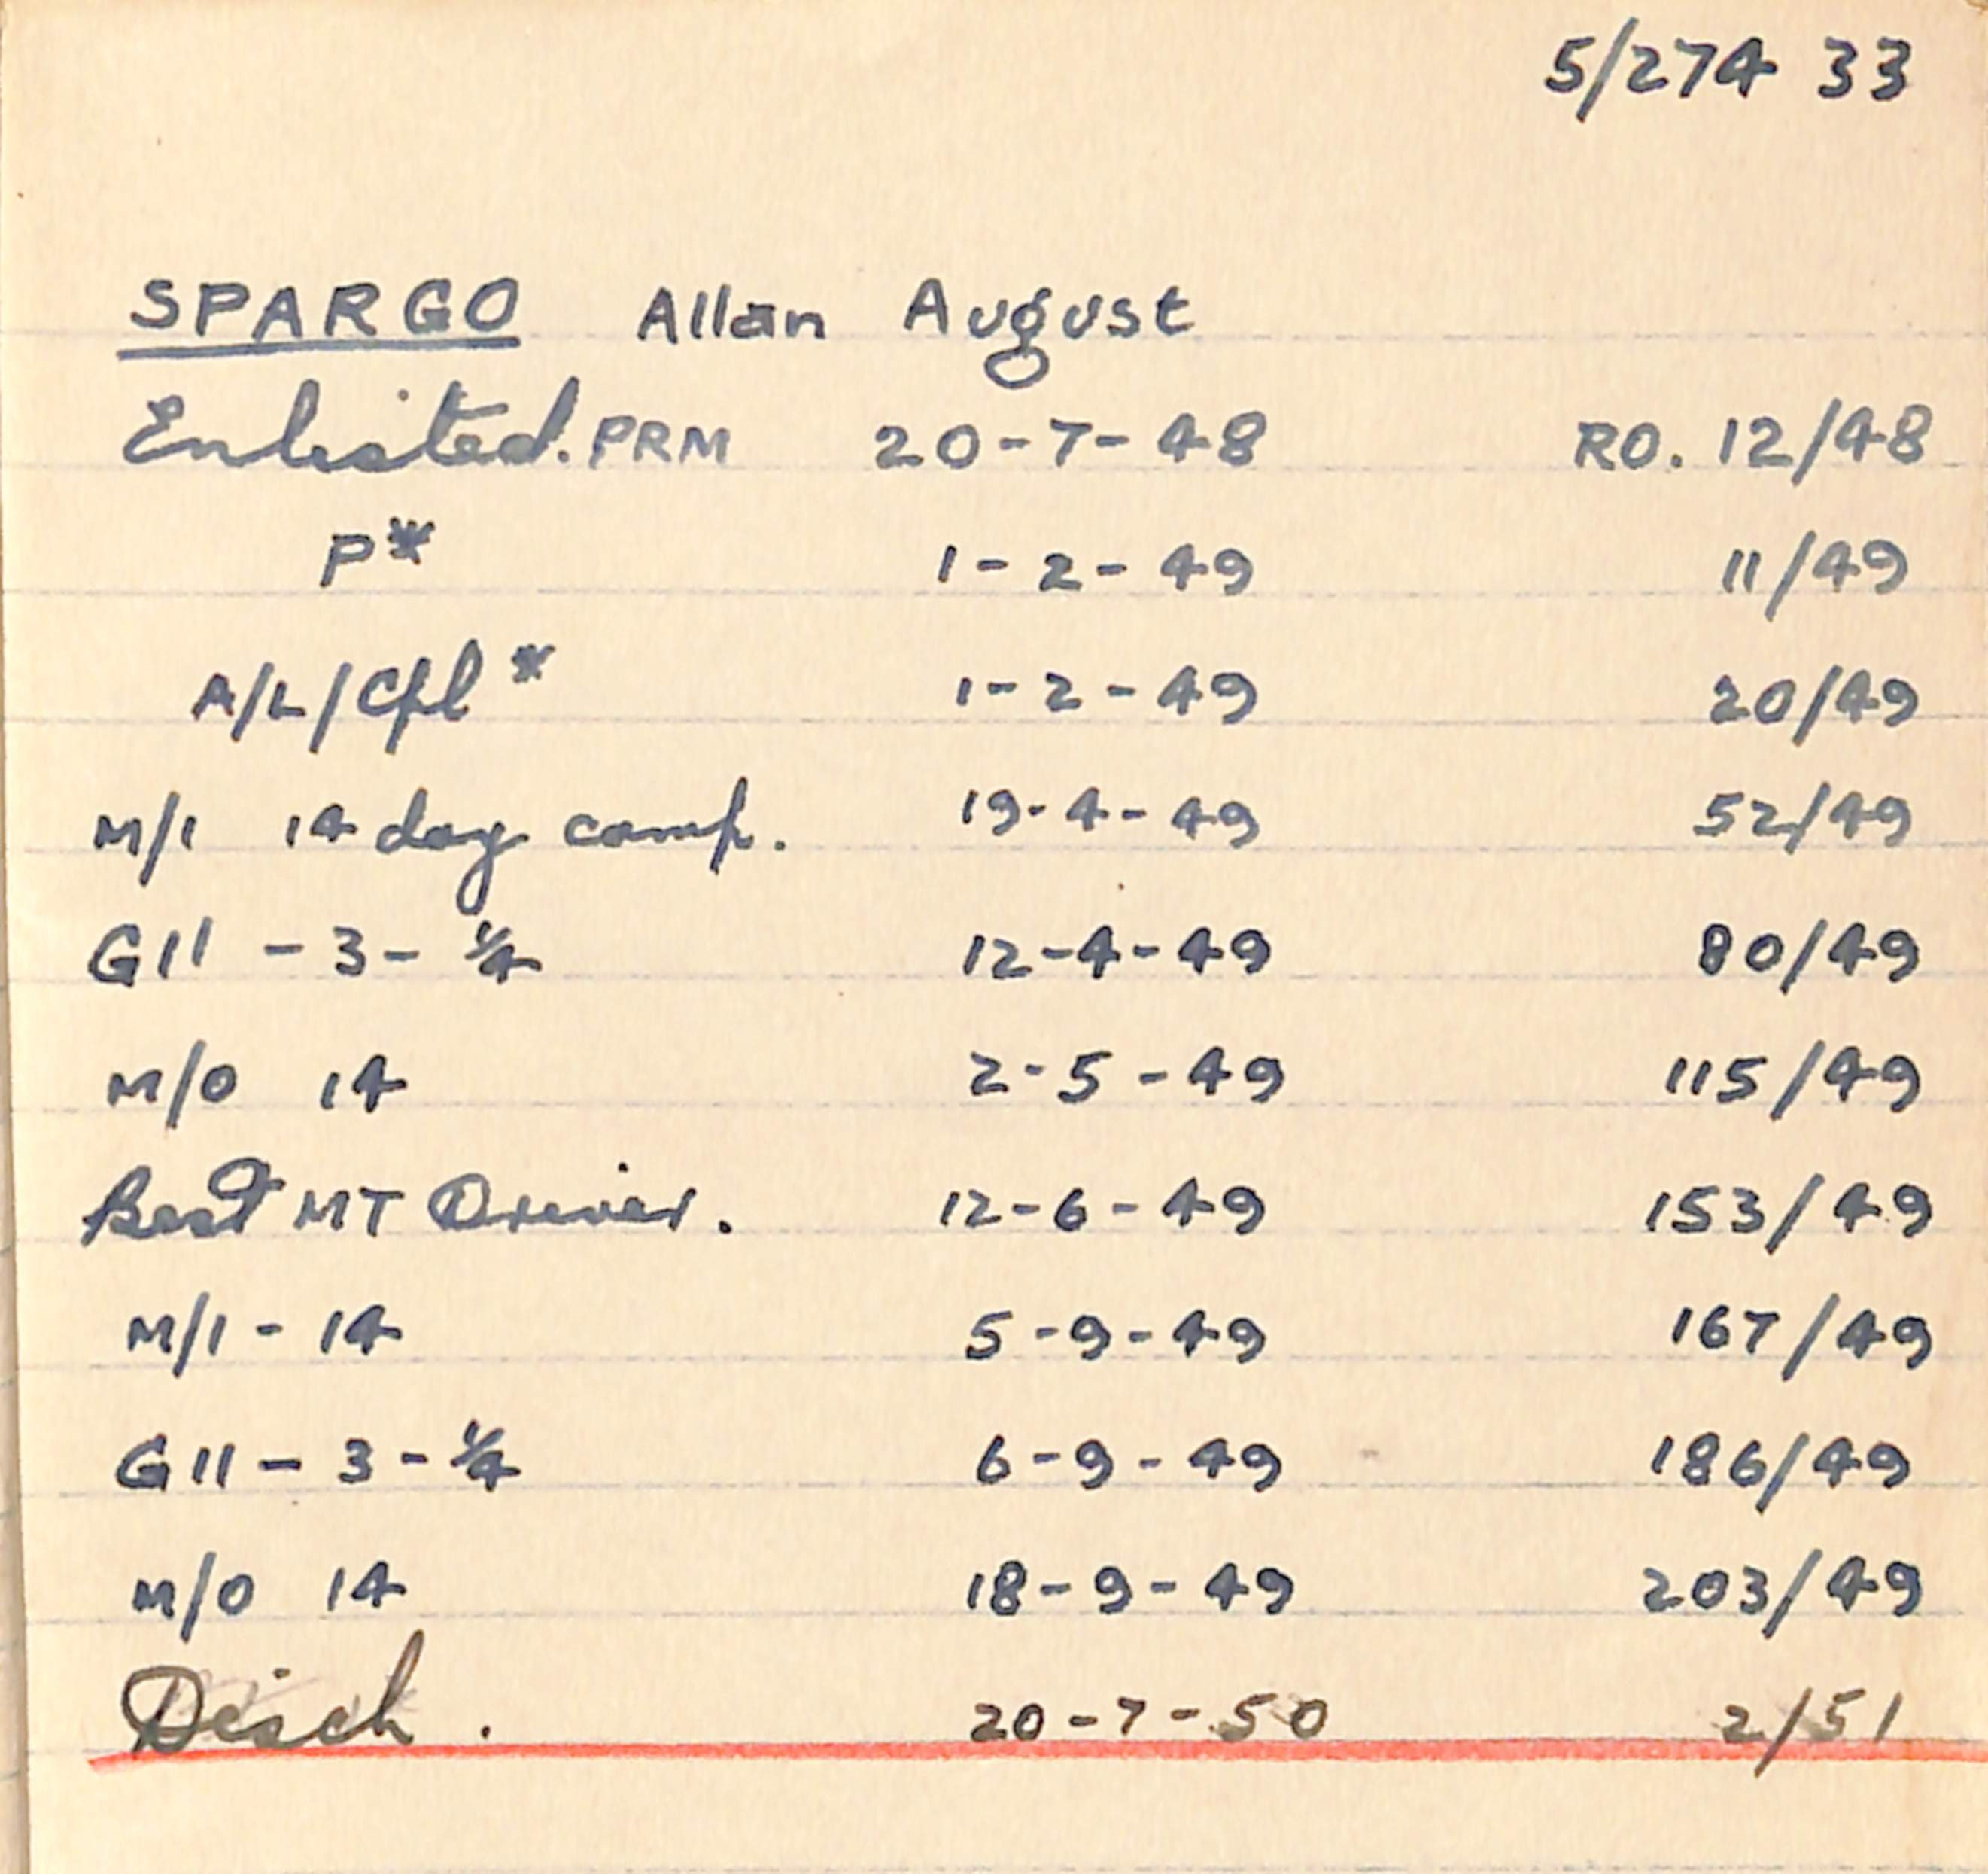 5/274 33
SPARGO Allan August
Enlisted. PRM 20-7-48 RO. 12/48
P* 1-2-49 11/49
A/L/Cpl* 1-2-49 20/49
M/I 14 day camp. 19-4-49 52/49
G11 - 3 - 1/4 12-4-49 80/49
M/O 14 2-5-49 115/49
Best MT Driver. 12-6-49 153/49
M/I - 14 5-9-49 167/49
G11 - 3 - 1/4 6-9-49 186/49
M/O 14 18-9-49 203/49
Disch. 20-7-50 2/51